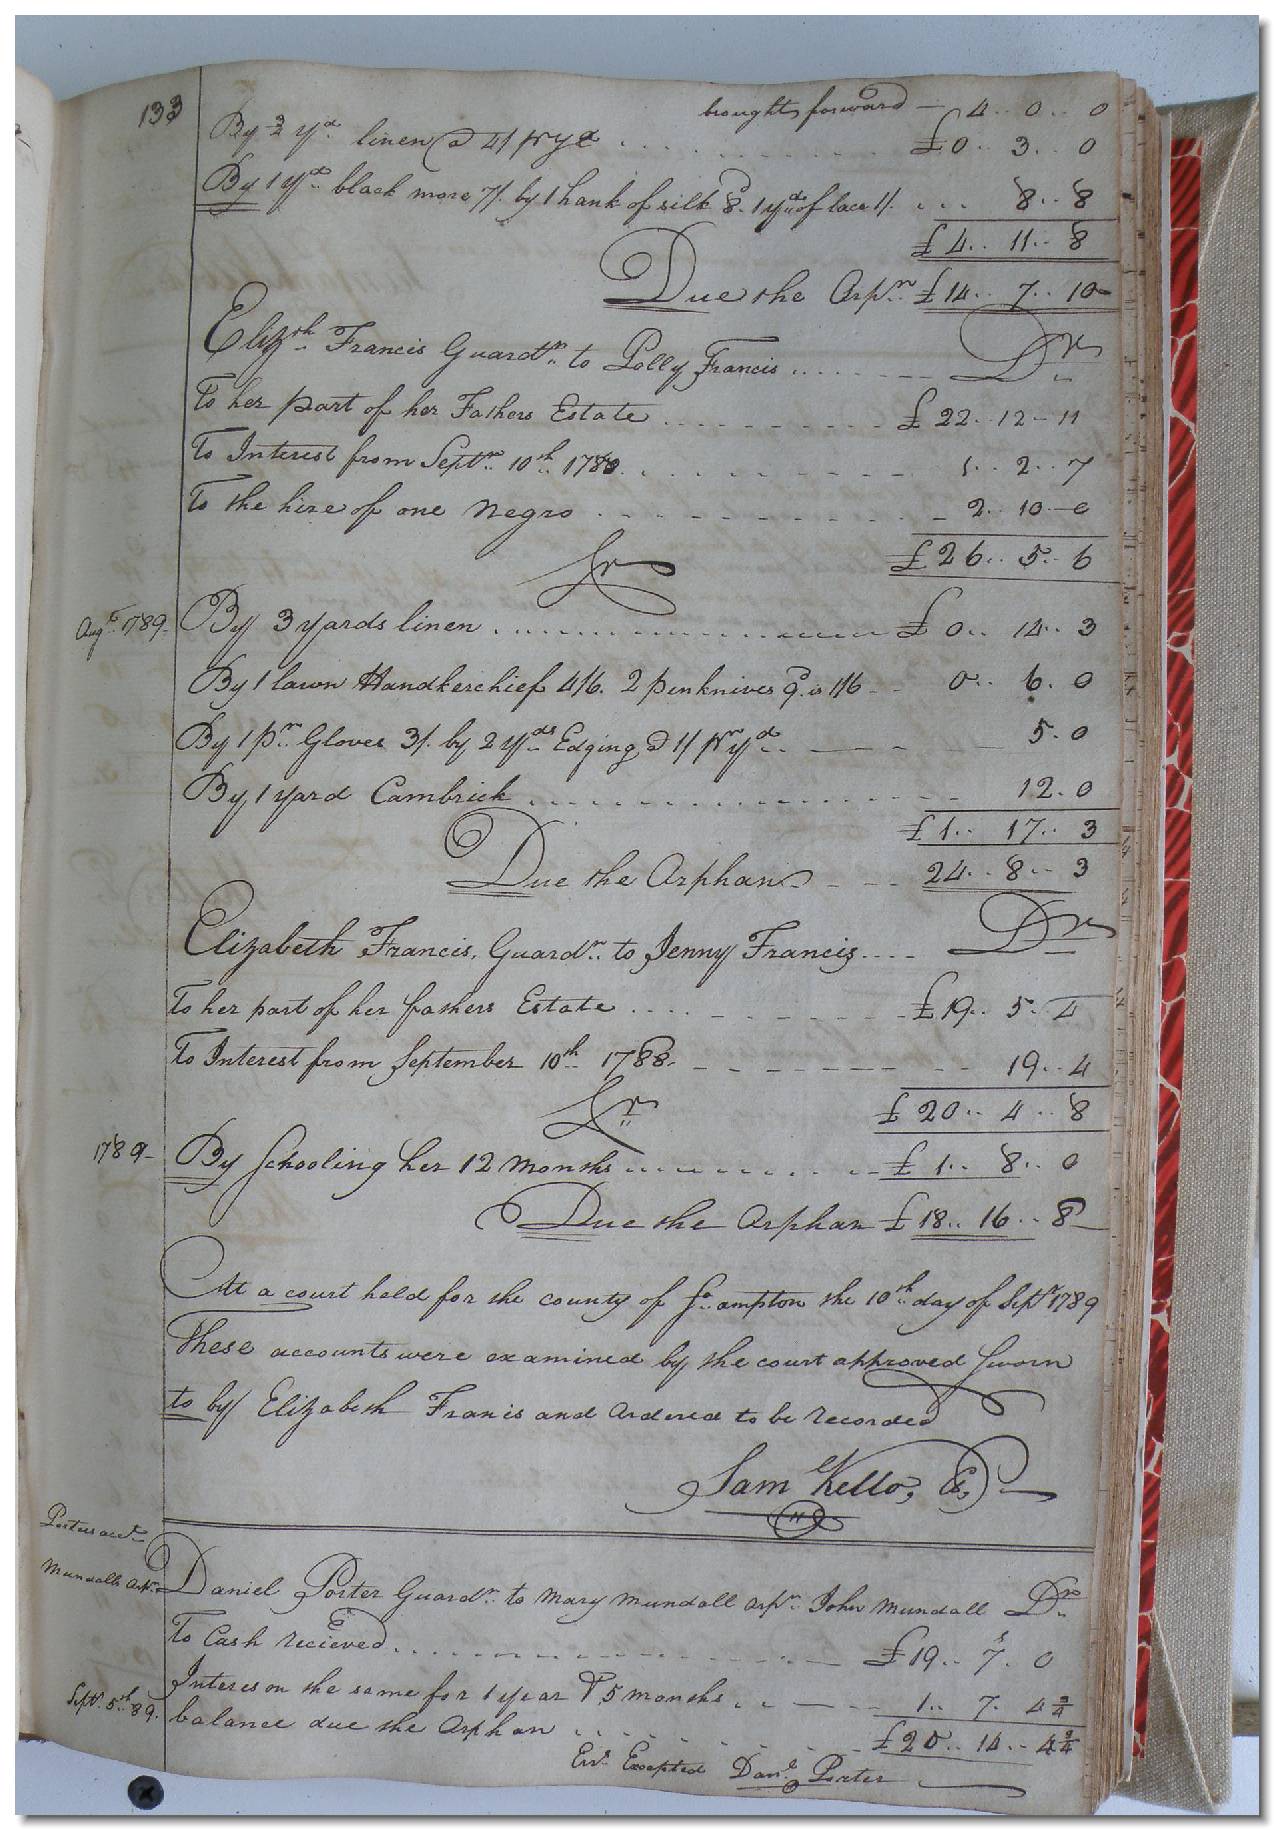 133
brought forward — 4.. 0.. 0
By 2 yd linen @ 4/ pr yd . . . . . . . . . . £0.. 3.. 0
By 1 yd.. black more 7/. by 1 hank of silk 8d. 1 yd of lace 1/. ... 8.. 8
£4.. 11.. 8
Due the Orpn.. £14.. 7.. 10
Elizth.. Francis Guardn.. to Polly Francis ........ Dr..
To her part of her Fathers Estate .......... £22.. 12 - 11
To Interest from Septr.. 10th.. 1788. .......... 1.. 2.. 7
To the hire of one Negro .......... 2.. 10 - 0
£26.. 5.. 6
Cr
Augt.. 1789. By 3 yards linen .......... £0.. 14.. 3
By 1 lawn Handkerchief 4/6. 2 penknives 9d. is 1/6 - - 0.. 6. 0
By 1 pr.. Gloves 3/. by 2 yds.. Edging @ 1/ pr yd.. — - — 5. 0
By 1 yard Cambrick .......... 12. 0
£1.. 17.. 3
Due the Orphan - - - 24.. 8.. 3
Elizabeth Francis, Guardn.. to Jenny Francis .... Dr
To her part of her fathers Estate .......... £19.. 5. 4
To Interest from September 10th.. 1788. - - - - - 19.. 4
£20.. 4.. 8
Cr
1789 - By Schooling her 12 Months .......... £1.. 8.. 0
Due the Orphan £18.. 16.. 8
At a court held for the county of So..ampton the 10th.. day of Septr 1789
These accounts were examined by the court approved Sworn
to by Elizabeth Franis and Ordered to be recorded
Saml Kello, C,
Porters acct.
Mundalls Orpn.. Daniel Porter Guardn.. to Mary Mundall orpn.. John Mundall Dr..
To Cash recieved .......... £19.. 7.. 0
Interes on the same for 1 year & 5 months .. - — 1.. 7. 4 3/4
Septr. 5th.. 89. balance due the Orphan .......... £20.. 14.. 4 3/4
Errs Excepted Danl. Porter